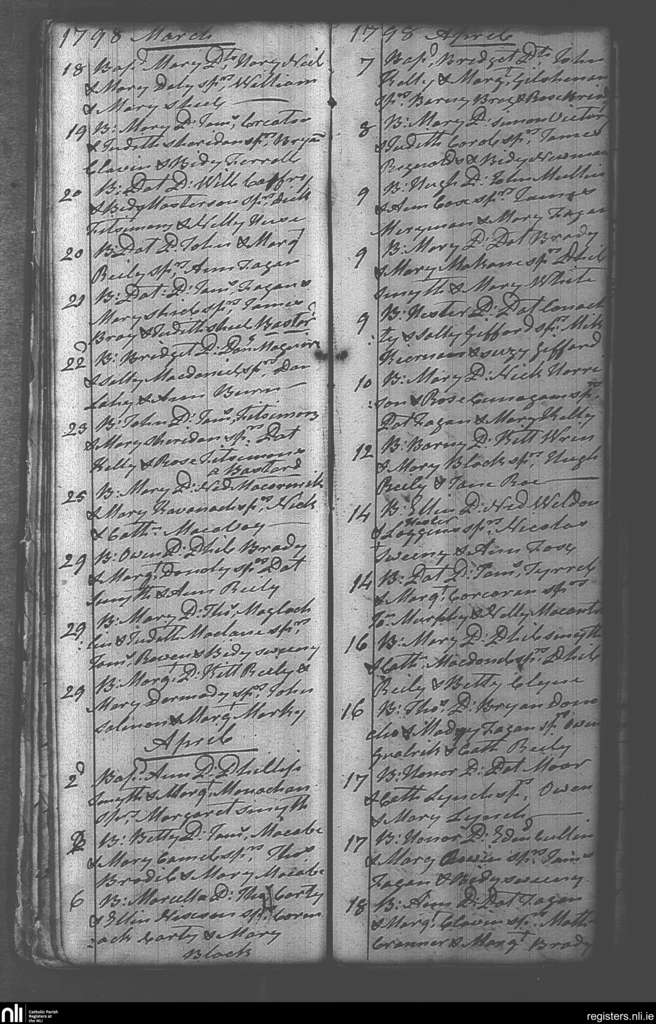 1798 March
18 Bapd. Mary Dtr. Nory Neil
& Mary Daly sprs. William
& Mary Sheil
19 B: Mary D: Jams. Creaton
& Judith Sheridan sprs. Bryan
Clavin & Bidy Farrell
20 B: Pat D: Will Caffrey
& Bidy Masterson sprs.
Fitsimons & Nelly
20 B: Pat D: John & Margt.
Reily sprs. Ann Fagan
21 B: Pat: D: Jams. Fagan &
Mary Shiel sprs. James
Bray & Judith Shiel Bastard
22d B: Bridget D: Danl. Maguire
& Salley Macdanel sprs. Dan
Lahy & Ann Burn
23 B: John D: Jams. Fitsimons
& Mary Sheridan sprs. Pat
Kelly & Rose Fitsimons
a Bastard
25 B: Mary D: Ned Macormick
& Mary Kavanach sprs. Nick
& Cath: Macaboy
29 B: Owen D: Phil Brady
& Margt. Donoly sprs. Pat
Smyth & Ann Reily
29 B: Mary D: Thos. Magloch
lin & Judith Maclane sprs.
Jams. Bowen & Bidy Sweeny
29 B: Margt. D: Kitt Reily &
Mary Dermody sprs. John
Salmon & Margt. Marky
April
2d Bapd. Ann D: Phillip
Smyth & Margt. Monachan
sprs. Margaret Smyth
B: Betty D: Jams. Macabe
& Mary Camel sprs. Thos.
Bradic & Mary Macabe
6 B: Marcella D: Thos. Carty
& Ellin sprs. Corm
:ack Carty & Mary
Block
1798 April
7 Bapd. Bridget Dtr. John
Kelly & Margt.
sprs. Barny Bray & Rose
8 B: Mary D: Simon
& Judith sprs. James
Reynolds & Bidy
9 B: Hugh D: John Mullin
& Ann Cox sprs. James
Merryman & Mary Fagan
9 B: Mary D: Pat Brady
& Mary Makane sprs. Phil
Smyth & Mary White
9 B: Hester D: Pat Conach
:ty & Salley Gifford sprs. Mik
Kiernan & Suzy Gifford
10 B: Mary D: Nick Norri
son & Rose Cunagan sprs.
Pat Fagan & Mary Kelly
12 B: Barny D: Kitt Wren
& Mary Block sprs. Hugh
Reily & Jane Roe
14 B: Ellin D: Ned Weldon
& Hester Loggins sprs. Nicolas
Sweeny & Ann Fox
14 B: Pat D: Jams. Tyrrel
& Margt. Corcoran sprs.
Jo. Murphy & Nelly Macanta
16 B: Mary D: Phil Smyth
& Cath: Macdanel sprs. Phil
Reily & Betty Clyne
16 B: Thos. D: Bryan Dono
cho & Madgy Fagan sprs. Owen
& Cath Reily
17 B: Honor D: Pat Moor
& Cath Lynch sprs. Owen
& Mary Lynch
17 B: Honor D: Edmd. Cullin
& Mary Bowen sprs. Jams.
Fagan & Bidy Sweeny
18 B: Ann D: Pat Fagan
& Margt. Clavin sprs. Matt
Granner & Margt. Brady
nli
Catholic Parish
Registers at
the NLI
registers.nli.ie